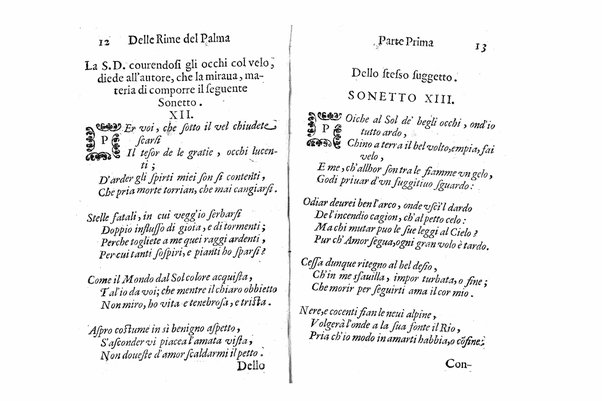 12 Delle Rime del Palma
La S.D. courendosi gli occhi col velo,
diede all'autore, che la miraua, ma-
teria di comporre il seguente
Sonetto.
XII.
PEr voi, che sotto il vel chiudete
scarsi
Il tesor de le gratie, occhi lucen-
ti;
D'arder gli spirti miei son sì contenti,
Che pria morte torrian, che mai cangiarsi.
Stelle fatali, in cui vegg'io serbarsi
Doppio influsso di gioia, e di tormenti;
Perche togliete a me quei raggi ardenti,
Per cui tanti sospiri, e pianti ho sparsi?
Come il Mondo dal Sol colore acquista,
Tal io da voi; che mentre il chiaro obbietto
Non miro, ho vita e tenebrosa, e trista.
Aspro costume in sì benigno aspetto,
S'asconder vi piacea l'amata vista,
Non doueste d'amor scaldarmi il petto.
Dello
Parte Prima 13
Dello stesso suggetto.
SONETTO XIII.
POiche al Sol de' begli occhi, ond'io
tutto ardo,
Chino a terra il bel volto, empia, fai
velo,
E me, ch'allhor son tra le fiamme vn gelo,
Godi priuar d'vn fuggitiuo sguardo:
Odiar deurei ben l'arco, onde vscì'l dardo
De l'incendio cagion, ch'al petto celo:
Ma chi mutar puo le sue leggi al Cielo?
Pur ch'Amor segua, ogni gran volo è tardo.
Cessa dunque ritegno al bel desio,
Ch'in me sfauilla, impor turbata, o fine;
Che morir per seguirti ama il cor mio.
Nere, e cocenti fian le neui alpine,
Volgerà l'onde a la sua fonte il Rio,
Pria ch'io modo in amarti habbia, o cōfine;
Con-